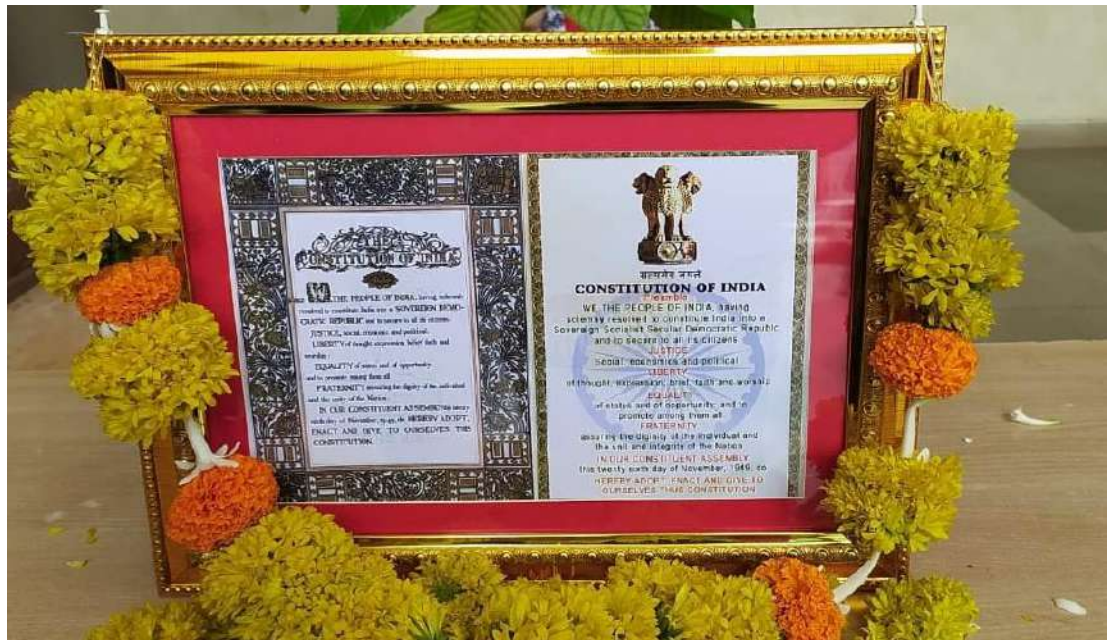 THE
CONSTITUTION OF INDIA
WE, THE PEOPLE OF INDIA, having solemnly
resolved to constitute India into a SOVEREIGN DEMO-
CRATIC REPUBLIC and to secure to all its citizens:
JUSTICE, social, economic and political;
LIBERTY of thought, expression, belief, faith and
worship;
EQUALITY of status and of opportunity;
and to promote among them all
FRATERNITY assuring the dignity of the individual
and the unity of the Nation;
IN OUR CONSTITUENT ASSEMBLY this twenty-
sixth day of November, 1949, do HEREBY ADOPT,
ENACT AND GIVE TO OURSELVES THIS
CONSTITUTION.
सत्यमेव जयते
CONSTITUTION OF INDIA
Preamble
WE THE PEOPLE OF INDIA, having
solemnly resolved to constitute India into a
Sovereign Socialist Secular Democratic Republic
and to secure to all its citizens
JUSTICE
Social, economics and political
LIBERTY
of thought, expression, brief, faith and worship
EQUALITY
of status and of opportunity, and to
promote among them all
FRATERNITY
assuring the dignity of the individual and
the unit and integrity of the Nation
IN OUR CONSTITUENT ASSEMBLY
this twenty sixth day of November, 1949, do
HEREBY ADOPT, ENACT AND GIVE TO
OURSELVES THUS CONSTITUTION